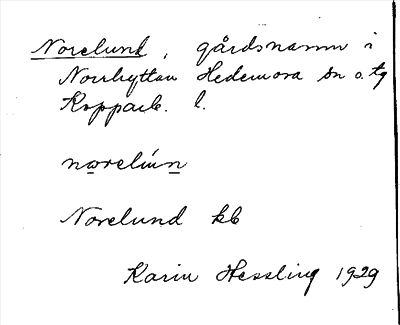 Norelund, gårdsnamn i
Norrhyttan Hedemora sn o. tg
Kopparb. l.
norelún
Norelund kb
Karin Hessling 1929